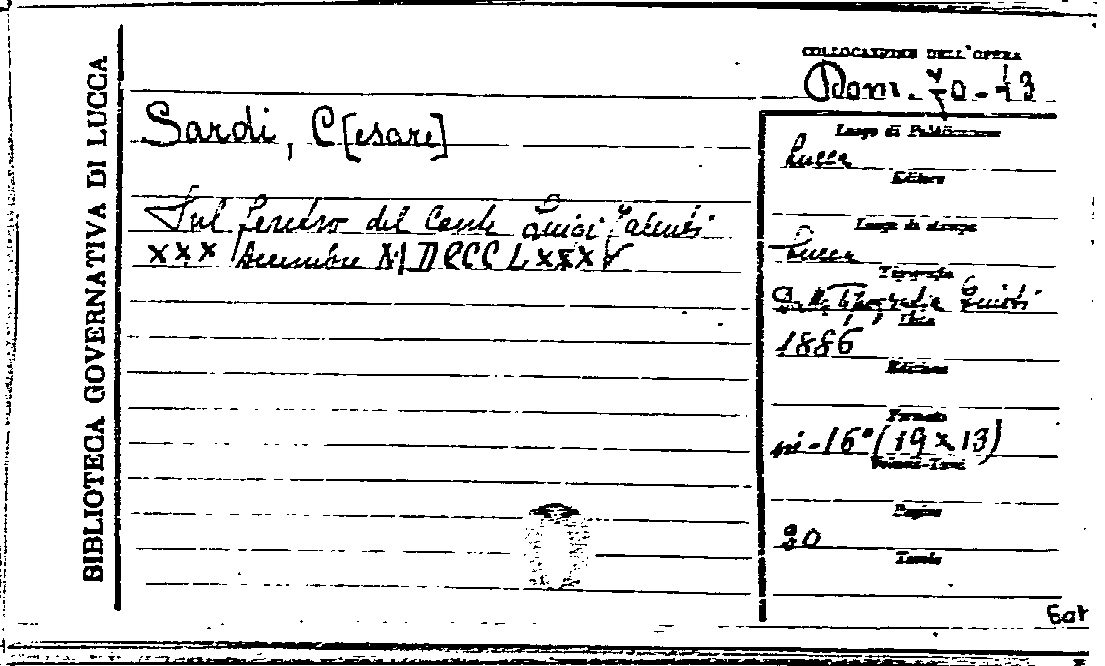 BIBLIOTECA GOVERNATIVA DI LUCCA
COLLOCAZIONE DELL'OPERA
Sardi, C[esare]
Sul feretro del Conte
XXX Decembre MDCCCLXXXV
Luogo di Pubblicazione
Lucca
Editore
Luogo di stampa
Lucca
Tipografia
Dalla Tipografia Giusti
Data
1886
Edizione
Formato
in-16° (19 x 13)
Volumi-Tomi
Pagine
20
Tavole